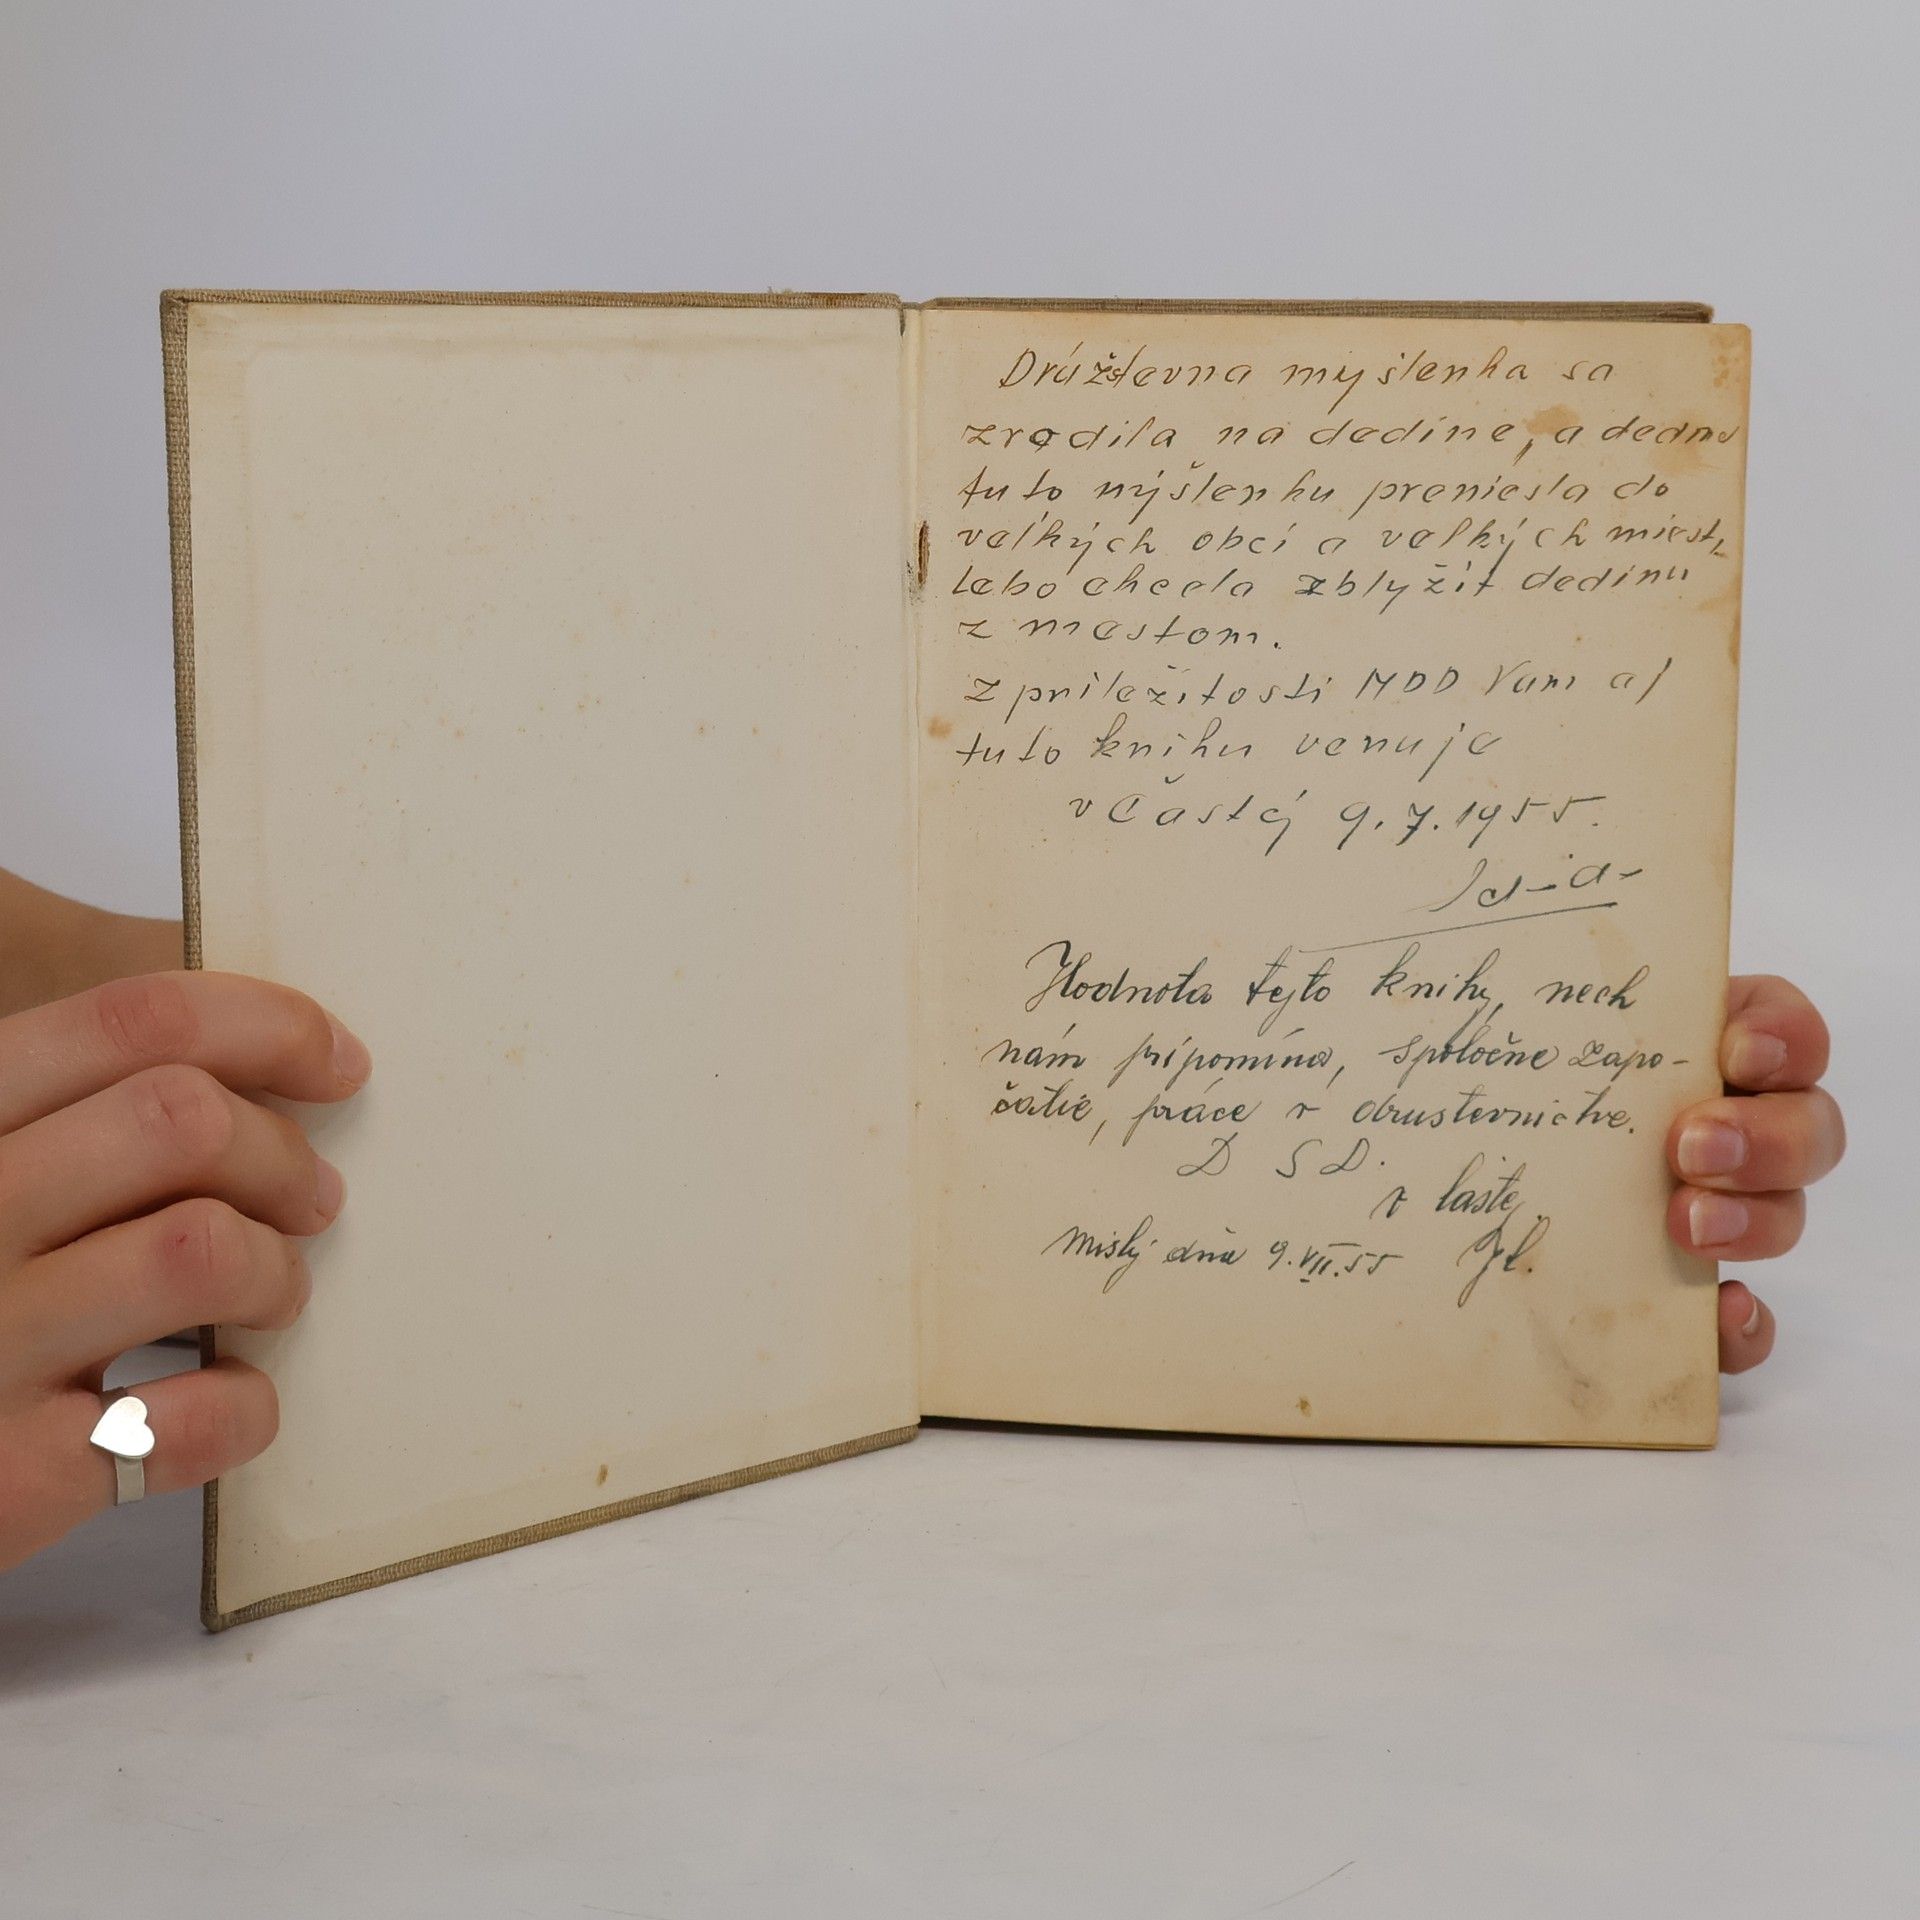 Drúžstevna myšlenka sa
zrodila na dedine, a
tuto mýšlenku preniesla do
veľkých obcí a veľkých miest,
lebo chcela zblyžiť dedinu
z mestom.
z príležitosti MDD Vám aj
tuto knihu venuje
v Častej 9.7.1955.
Hodnota tejto knihy, nech
nám pripomína, spoločne zapo-
čatie, práce v drustevnictve.
D S D.
v
dňa 9.VII.55 Jl.